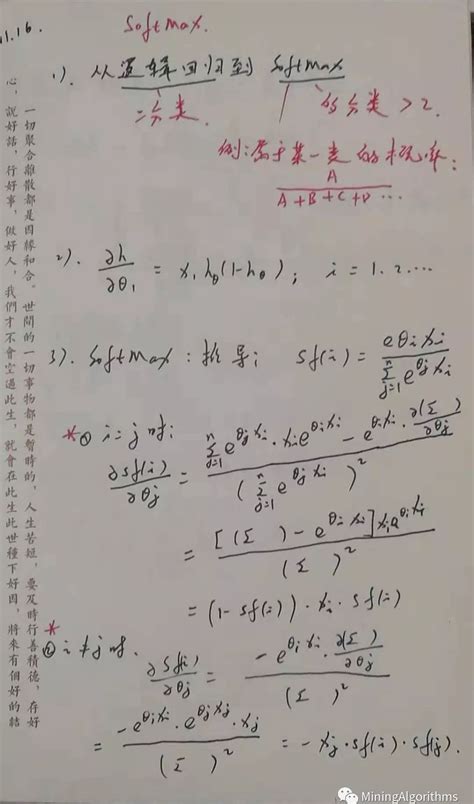 11.16.
Softmax.
1). 从逻辑回归到 Softmax
二分类.
的分类 > 2.
例:属于某一类的概率:
A
A+B+C+D ...
2). ∂h/∂θ₁ = x₁hθ(1-hθ); i = 1. 2. ...
3). Softmax: 推导; sf(i) = e^{θi xi} / Σ_{j=1}^{n} e^{θj xi}
* ① i=j 时:
∂sf(i)/∂θj = (Σ_{j=1}^{n} e^{θj xi} · xi e^{θi xi} - e^{θi xi} · ∂(Σ)/∂θj) / (Σ_{j=1}^{n} e^{θj xi})²
= [(Σ ) - e^{θi xi}] xi e^{θi xi} / (Σ )²
= (1- sf(i)) · xi · sf(i)
* ② i≠j 时.
∂sf(i)/∂θj = -e^{θi xi} · ∂(Σ )/∂θj / (Σ )²
= -e^{θi xi} · e^{θj xj} · xj / (Σ )² = -xj · sf(i) · sf(j).
一切聚合離散都是因緣和合。世間的一切事物都是暫時的,人生苦短,要及時行善積德,存好
心,說好話,行好事,做好人,我們才不會空過此生,就會在此生此世種下好因,將來有個好的結
MiningAlgorithms